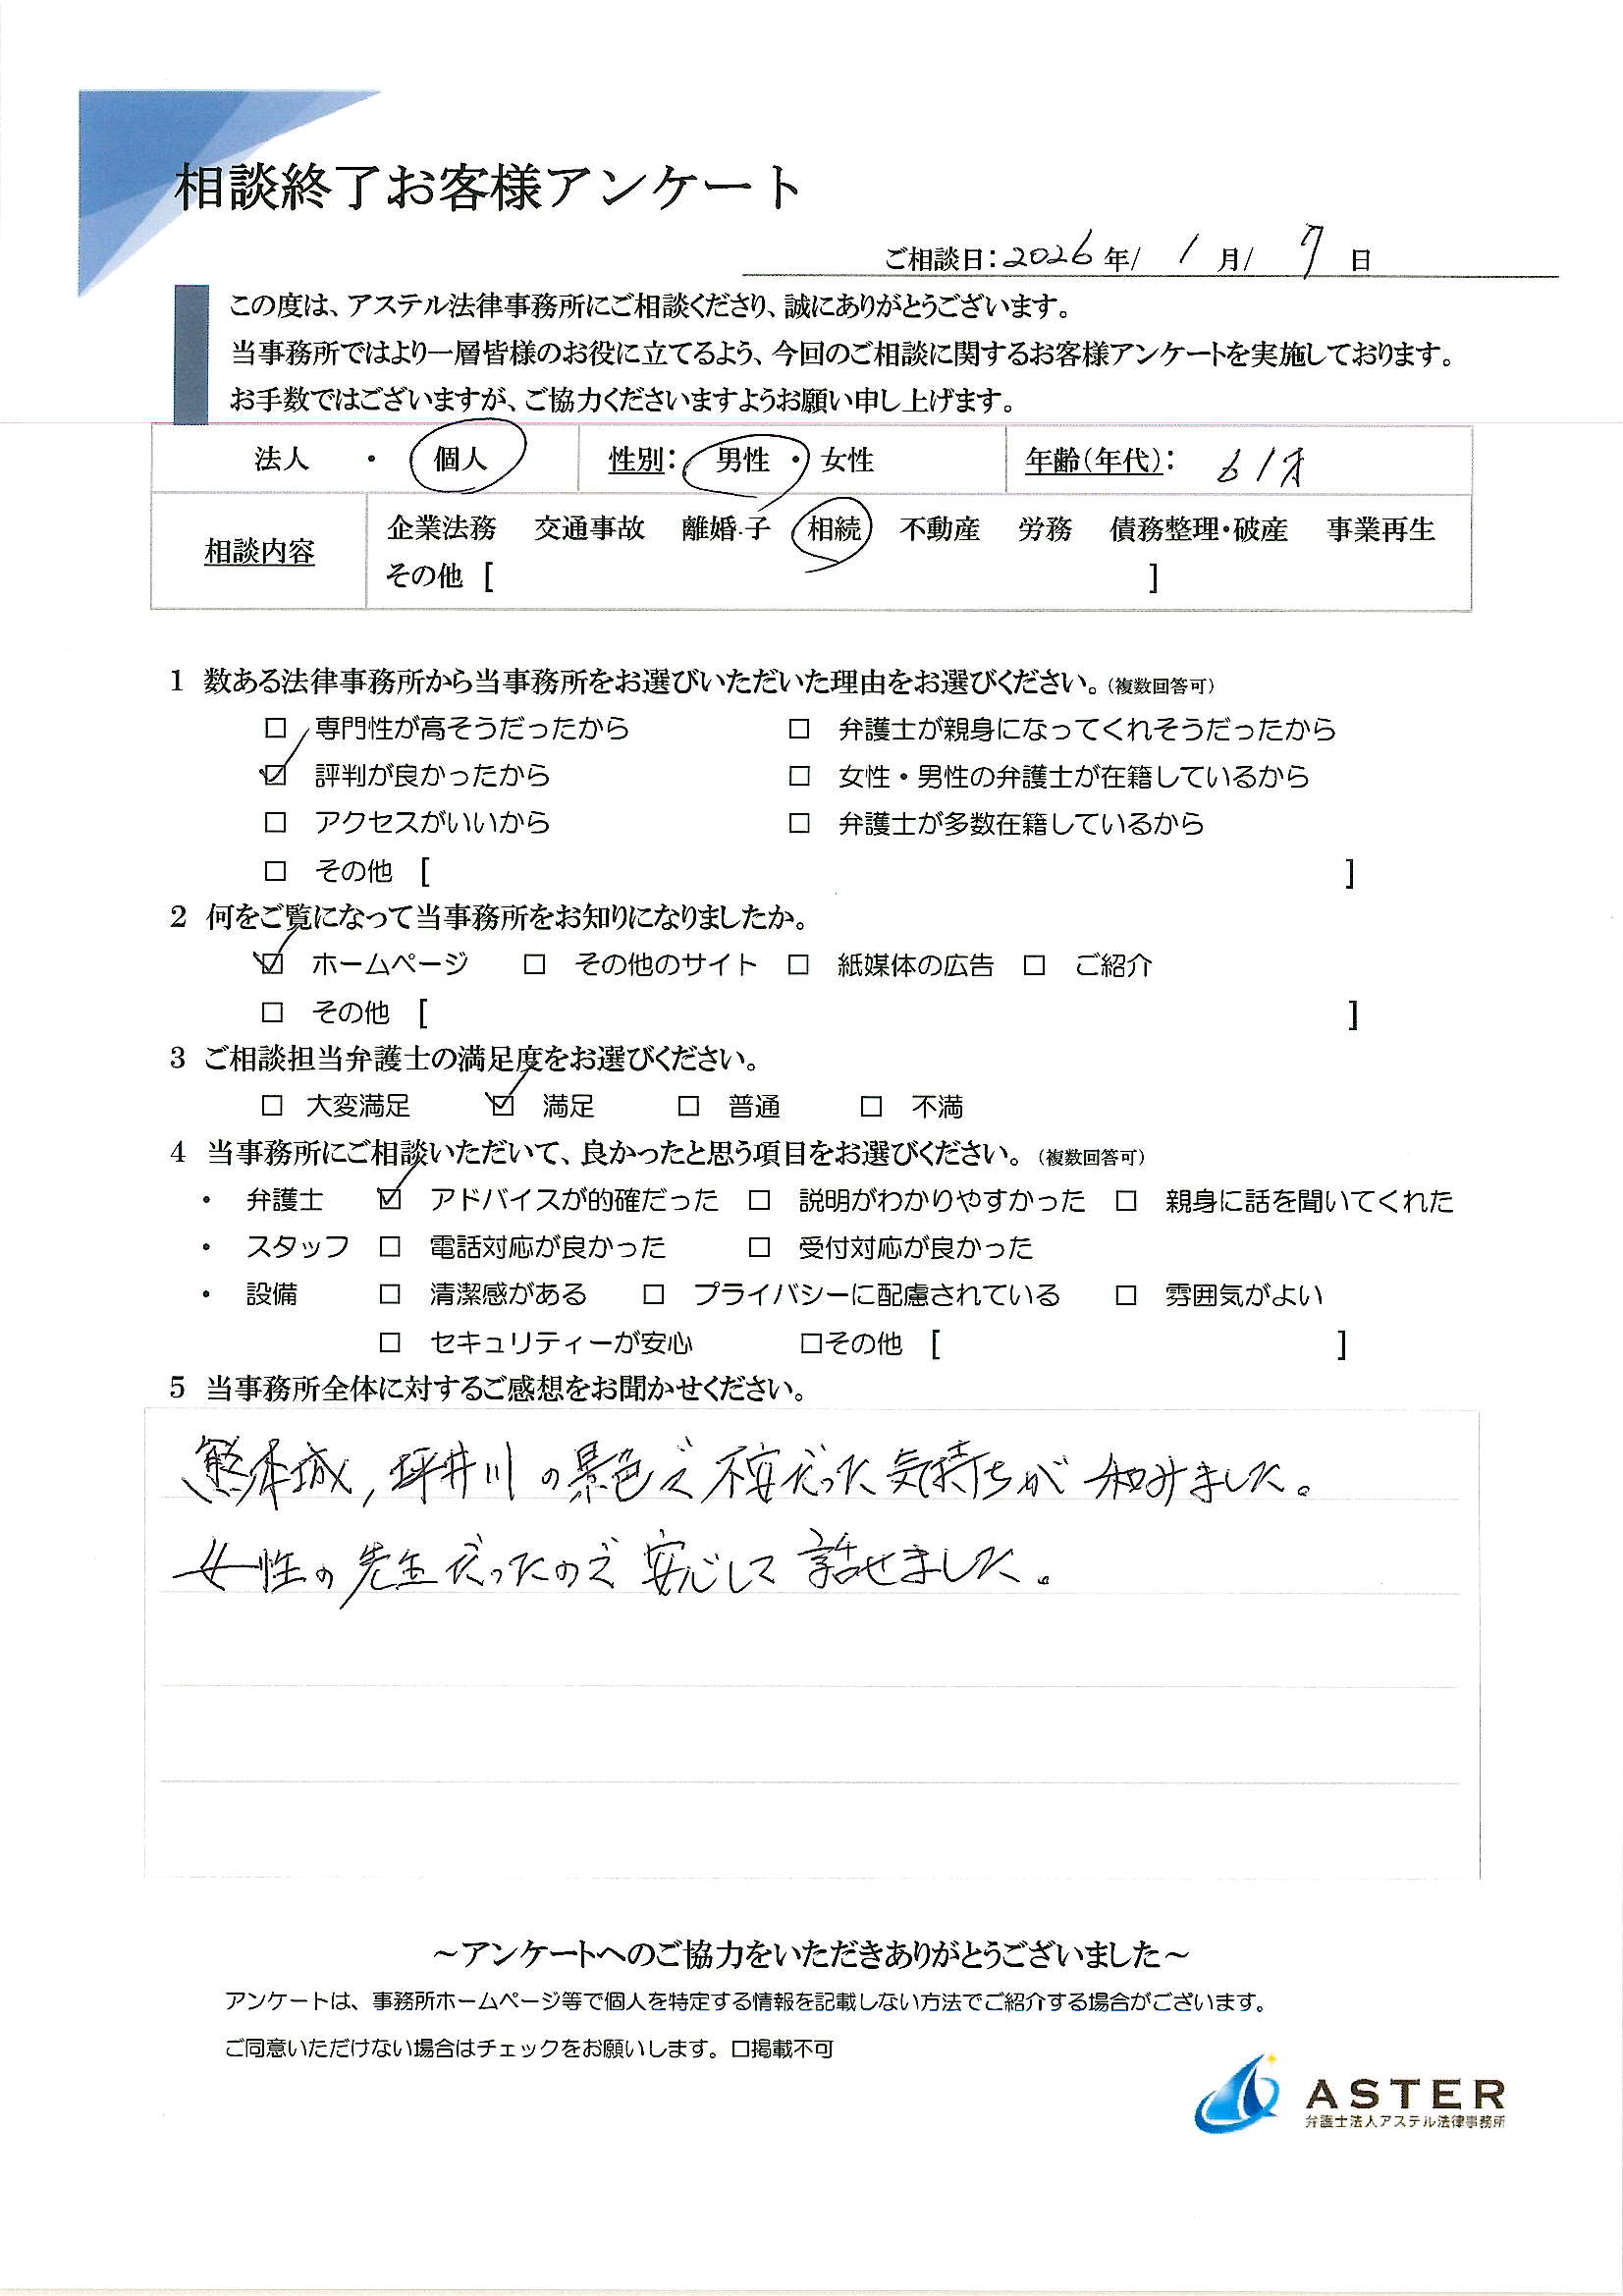 相談終了お客様アンケート
ご相談日：2026年/ 1月/ 7日
この度は、アステル法律事務所にご相談くださり、誠にありがとうございます。
当事務所ではより一層皆様のお役に立てるよう、今回のご相談に関するお客様アンケートを実施しております。
お手数ではございますが、ご協力くださいますようお願い申し上げます。
法人 ・ 個人 性別： 男性 ・ 女性 年齢（年代）： 61才
相談内容 企業法務 交通事故 離婚・子 相続 不動産 労務 債務整理・破産 事業再生
その他 [ ]
1 数ある法律事務所から当事務所をお選びいただいた理由をお選びください。（複数回答可）
□ 専門性が高そうだったから □ 弁護士が親身になってくれそうだったから
☑ 評判が良かったから □ 女性・男性の弁護士が在籍しているから
□ アクセスがいいから □ 弁護士が多数在籍しているから
□ その他 [ ]
2 何をご覧になって当事務所をお知りになりましたか。
☑ ホームページ □ その他のサイト □ 紙媒体の広告 □ ご紹介
□ その他 [ ]
3 ご相談担当弁護士の満足度をお選びください。
□ 大変満足 ☑ 満足 □ 普通 □ 不満
4 当事務所にご相談いただいて、良かったと思う項目をお選びください。（複数回答可）
・ 弁護士 ☑ アドバイスが的確だった □ 説明がわかりやすかった □ 親身に話を聞いてくれた
・ スタッフ □ 電話対応が良かった □ 受付対応が良かった
・ 設備 □ 清潔感がある □ プライバシーに配慮されている □ 雰囲気がよい
□ セキュリティーが安心 □その他 [ ]
5 当事務所全体に対するご感想をお聞かせください。
熊本城，坪井川の景色で不安だった気持ちが和みました。
女性の先生だったので安心して話せました。
～アンケートへのご協力をいただきありがとうございました～
アンケートは、事務所ホームページ等で個人を特定する情報を記載しない方法でご紹介する場合がございます。
ご同意いただけない場合はチェックをお願いします。□掲載不可
ASTER
弁護士法人アステル法律事務所